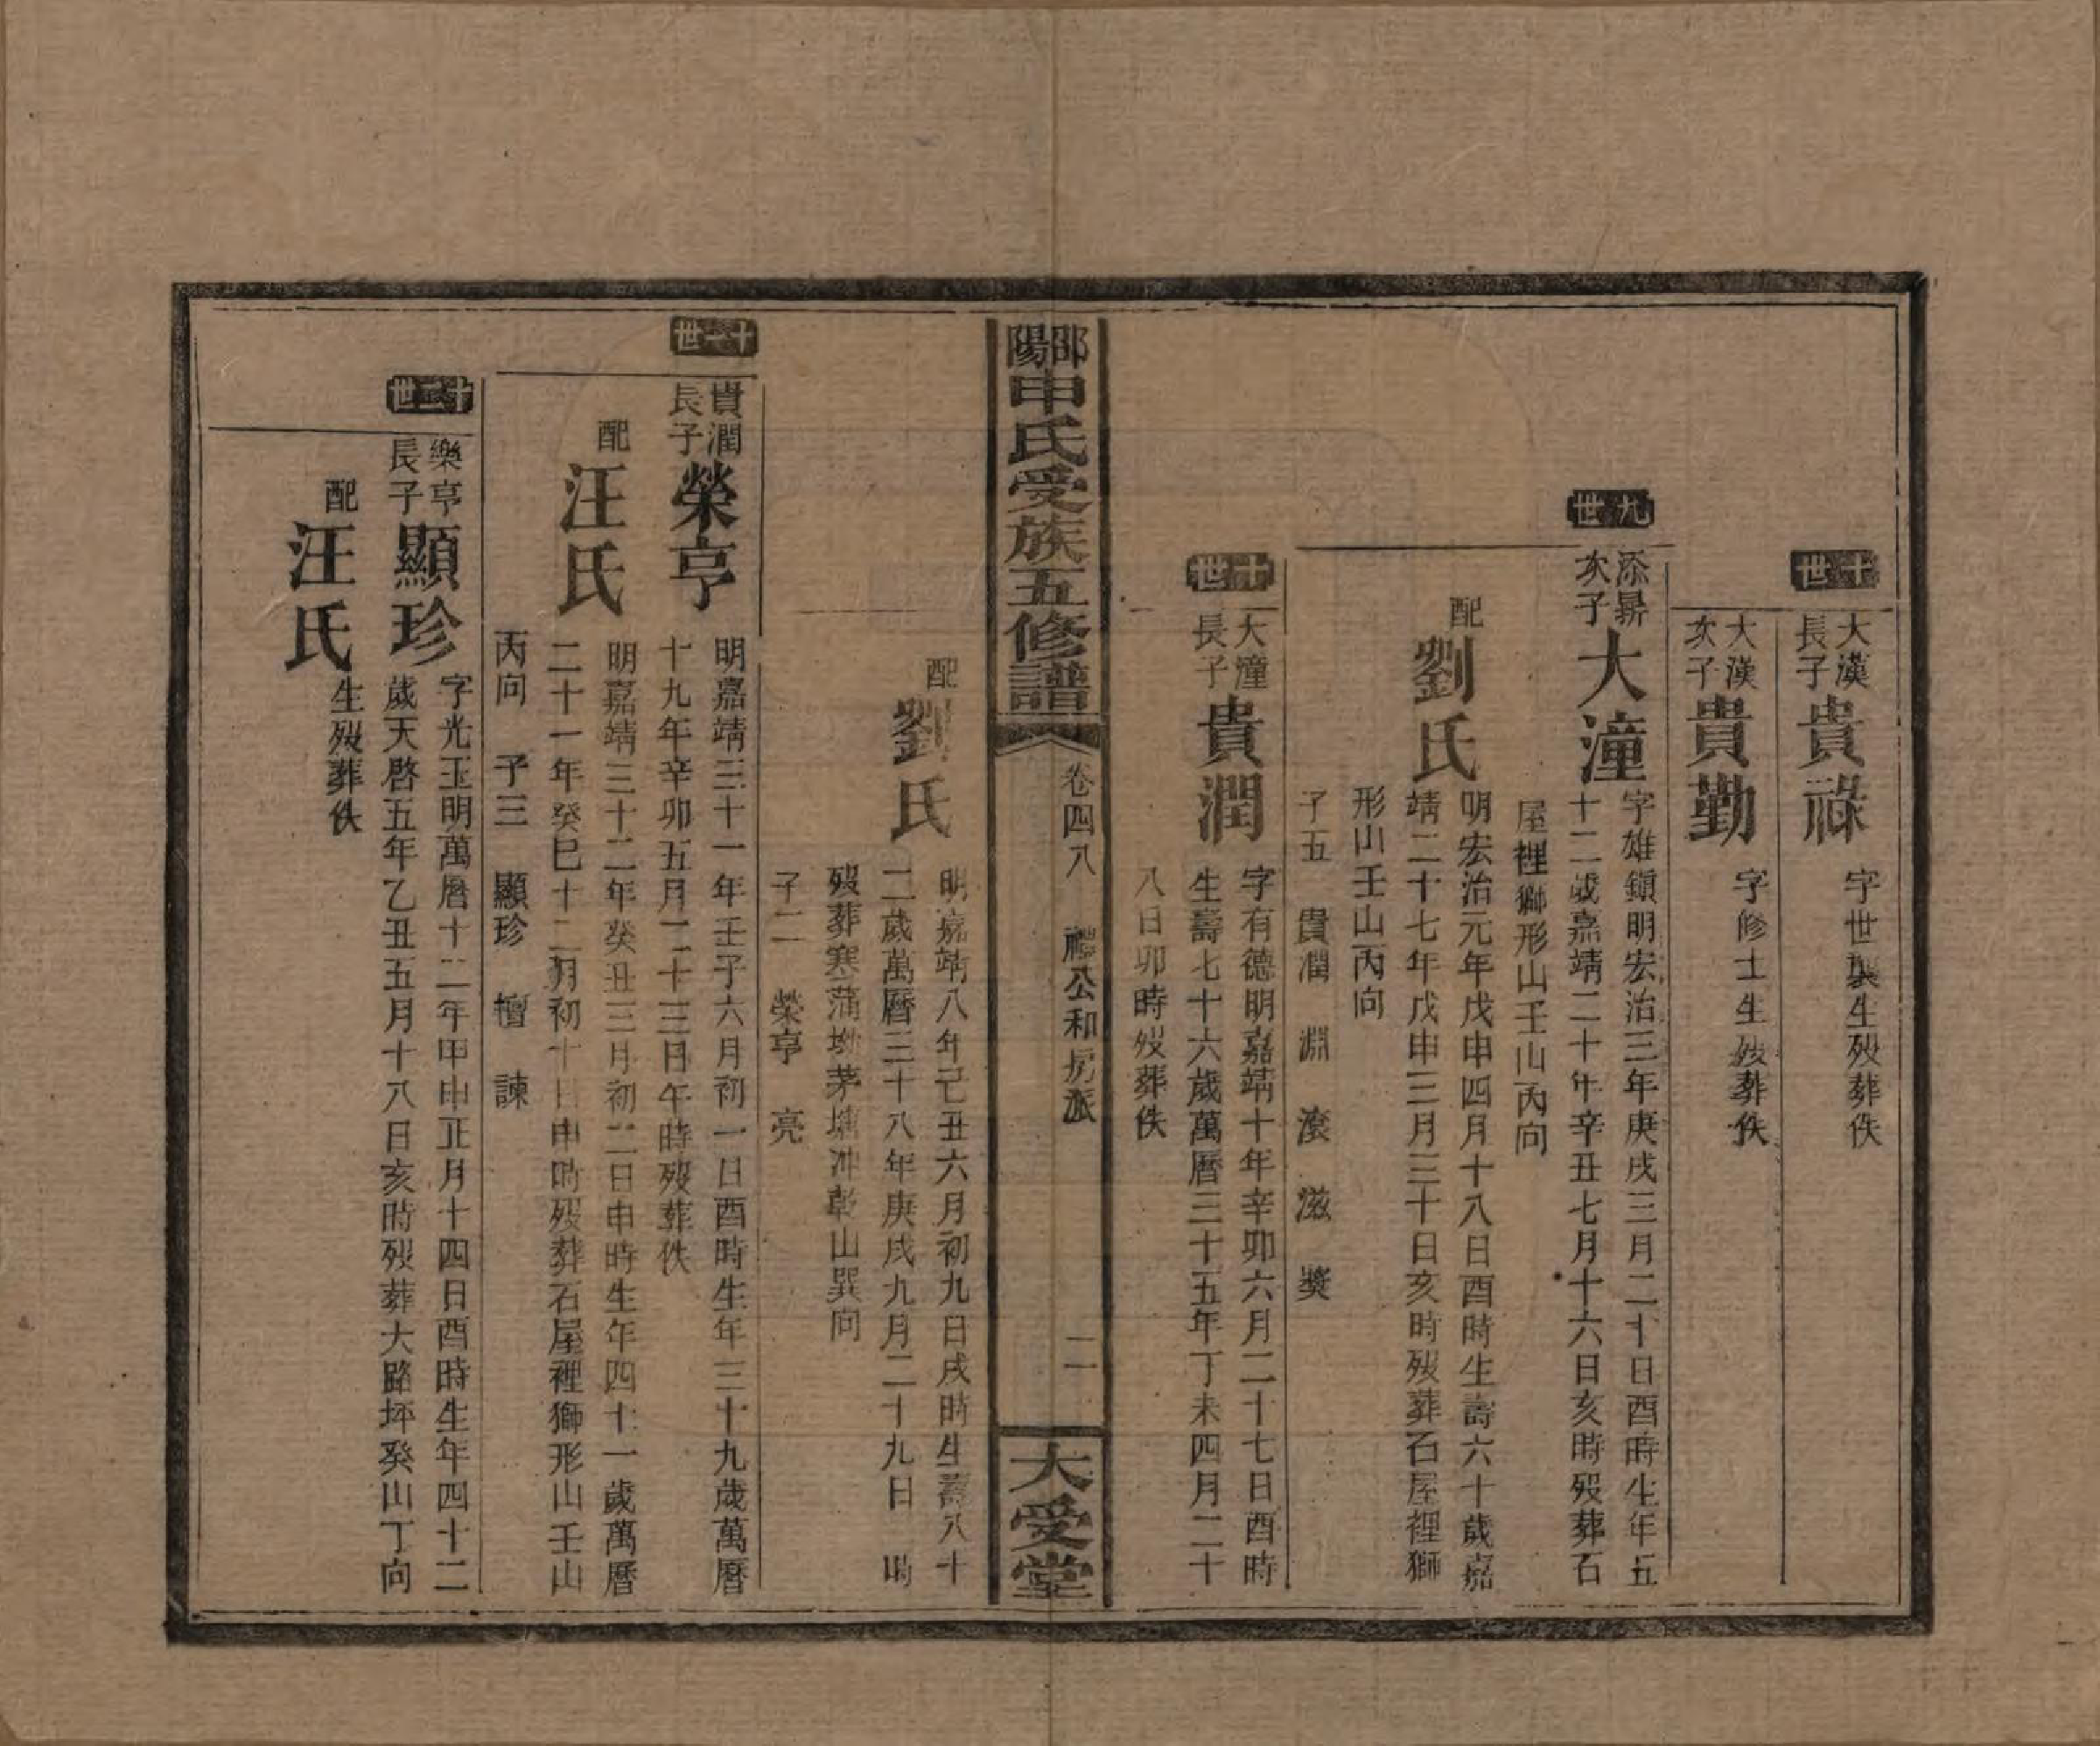 十世
大漢長子
貴祿
字世製生歿葬佚
大漢次子
貴勤
字修士生歿葬佚
九世
添昇次子
大潼
字雄鎮明宏治三年庚戌三月二十日酉時生年五
十二歲嘉靖二十年辛丑七月十六日亥時歿葬石
屋裡獅形山壬山丙向
配
劉氏
明宏治元年戊申四月十八日酉時生壽六十歲嘉
靖二十七年戊申三月三十日亥時歿葬石屋裡獅
形山壬山丙向
子五 貴潤 淵 滚 滋 獎
十世
大潼長子
貴潤
字有德明嘉靖十年辛卯六月二十七日酉時
生壽七十六歲萬曆三十五年丁未四月二十
八日卯時歿葬佚
邵陽申氏受族五修譜
卷四八 禮公和房派
二一
大受堂
配
劉氏
明嘉靖八年己丑六月初九日戌時生壽八十
二歲萬曆三十八年庚戌九月二十九日 時
歿葬寒蒲坳茅塘冲乾山巽向
子二 榮亨 亮
十一世
貴潤長子
榮亨
明嘉靖三十一年壬子六月初一日酉時生年三十九歲萬曆
十九年辛卯五月二十三日午時歿葬佚
配
汪氏
明嘉靖三十二年癸丑三月初二日申時生年四十一歲萬曆
二十一年癸巳十二月初十日申時歿葬石屋裡獅形山壬山
丙向 子三 顯珍 檀 諫
十二世
樂亨長子
顯珍
字光玉明萬曆十二年甲申正月十四日酉時生年四十二
歲天啓五年乙丑五月十八日亥時歿葬大路坪癸山丁向
配
汪氏
生歿葬佚